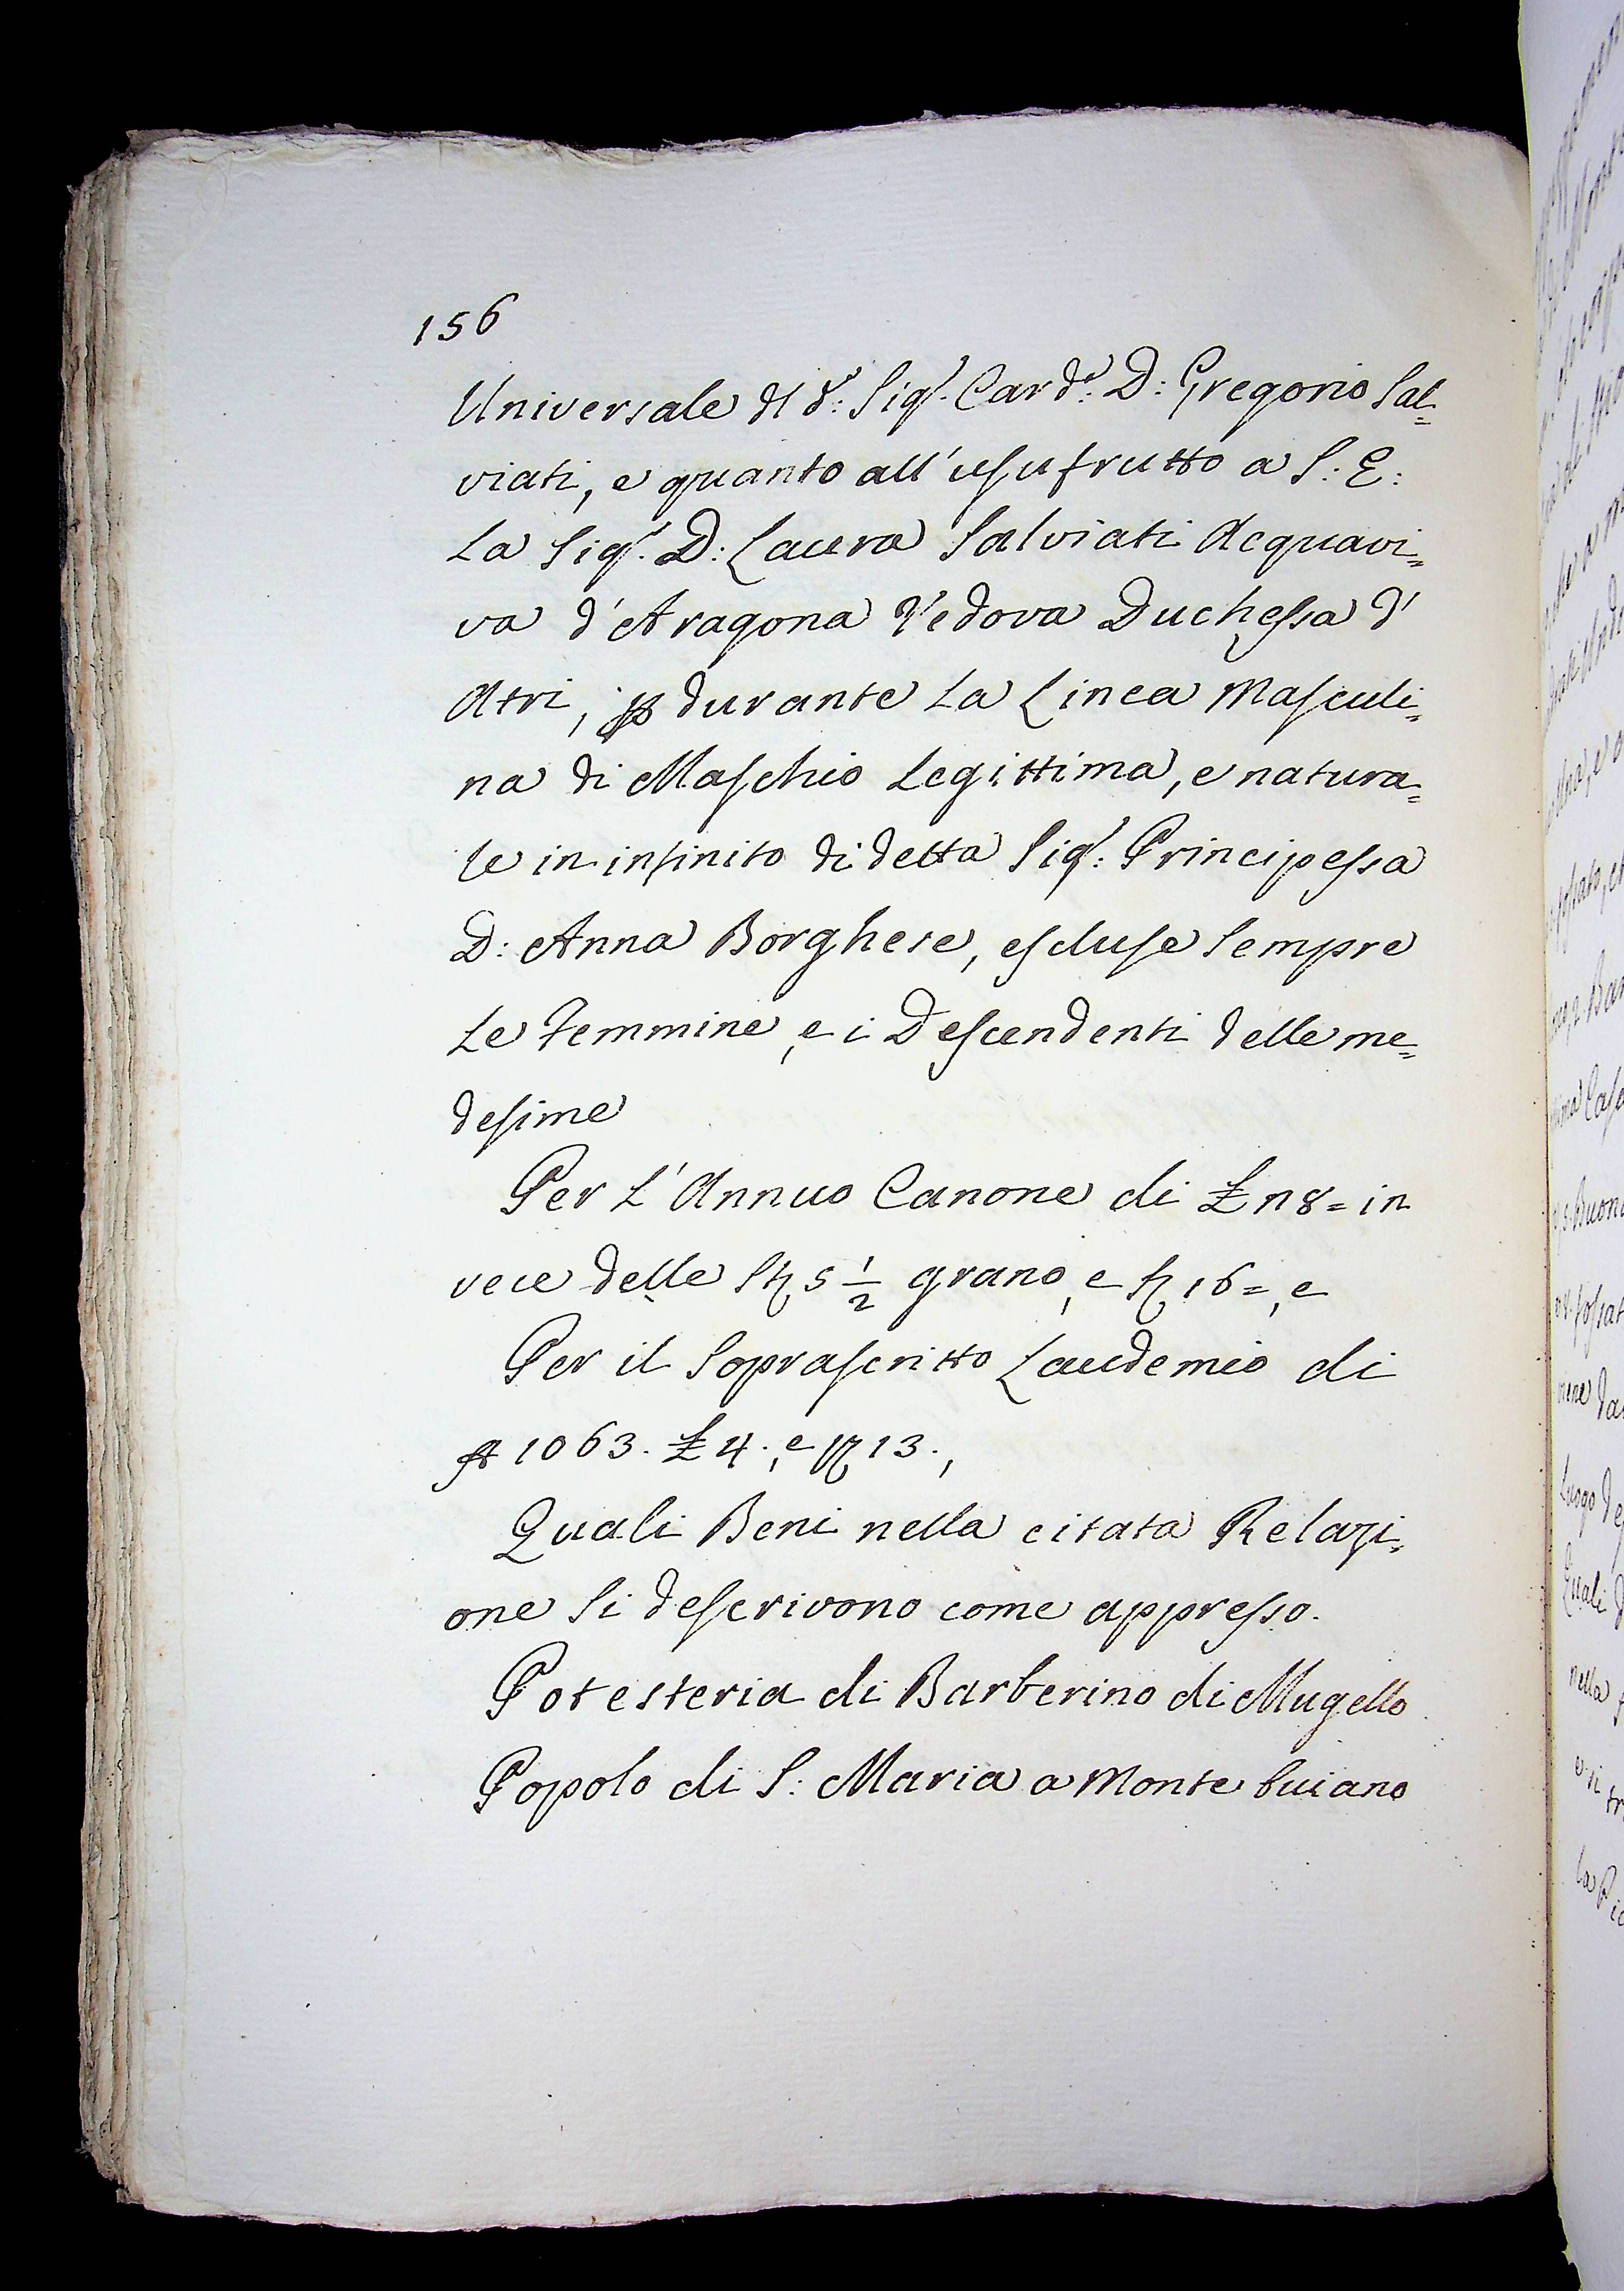 156
Universale dl d.o Sig.r Card.e D: Gregorio Sal=
viati, e quanto all'usufrutto a S. E:
La Sig.ra D: Laura Salviati Acquavi=
va d'Aragona Vedova Duchessa d'
Atri, p durante La Linea Masculi=
na di Maschio Legittima, e natura=
le in infinito di detta Sig.ra Principessa
D: Anna Borghese, escluse sempre
Le Femmine, e i Descendenti delle me=
desime
Per L'Annuo Canone di £ 118= in
vece delle St 5 1/2 grano, e 16=, e
Per il Soprascritto Laudemio di
1063. £ 4., e 13.,
Quali Beni nella citata Relazi=
one Si descrivono come appresso.
Potesteria di Barberino di Mugello
Popolo di S: Maria a Monte buiano